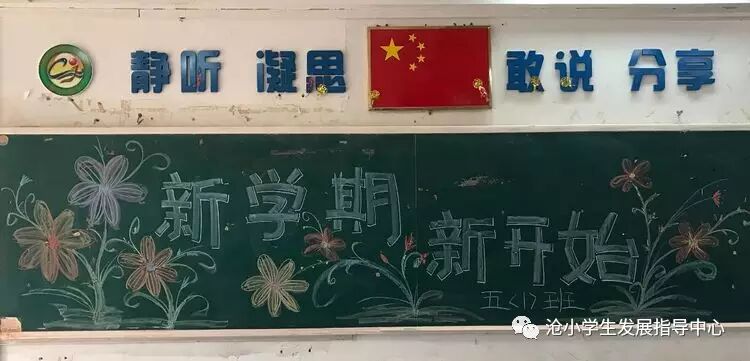 静听 凝思 敢说 分享
新学期
新开始
五<1>班
沧小学生发展指导中心